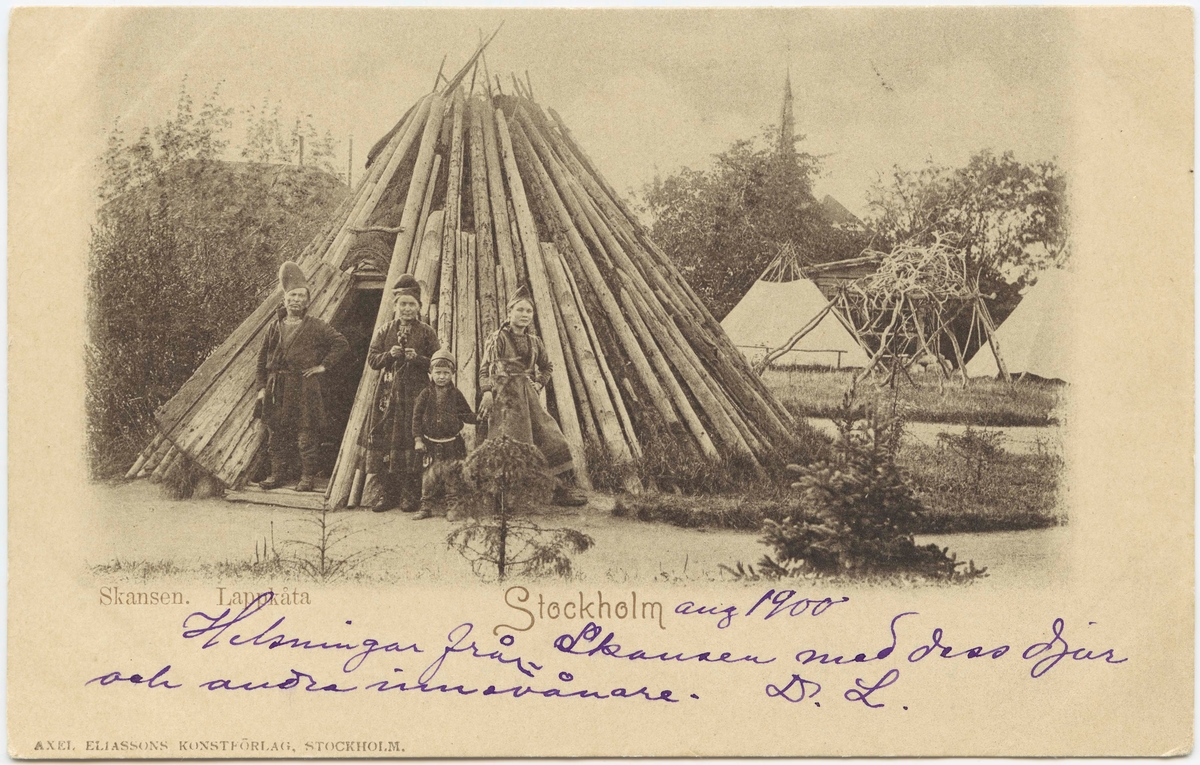 Skansen. Lappkåta
Stockholm aug 1900
Helsningar från Skansen med dess djur
och andra innevånare. D. L.
AXEL ELIASSONS KONSTFÖRLAG, STOCKHOLM.